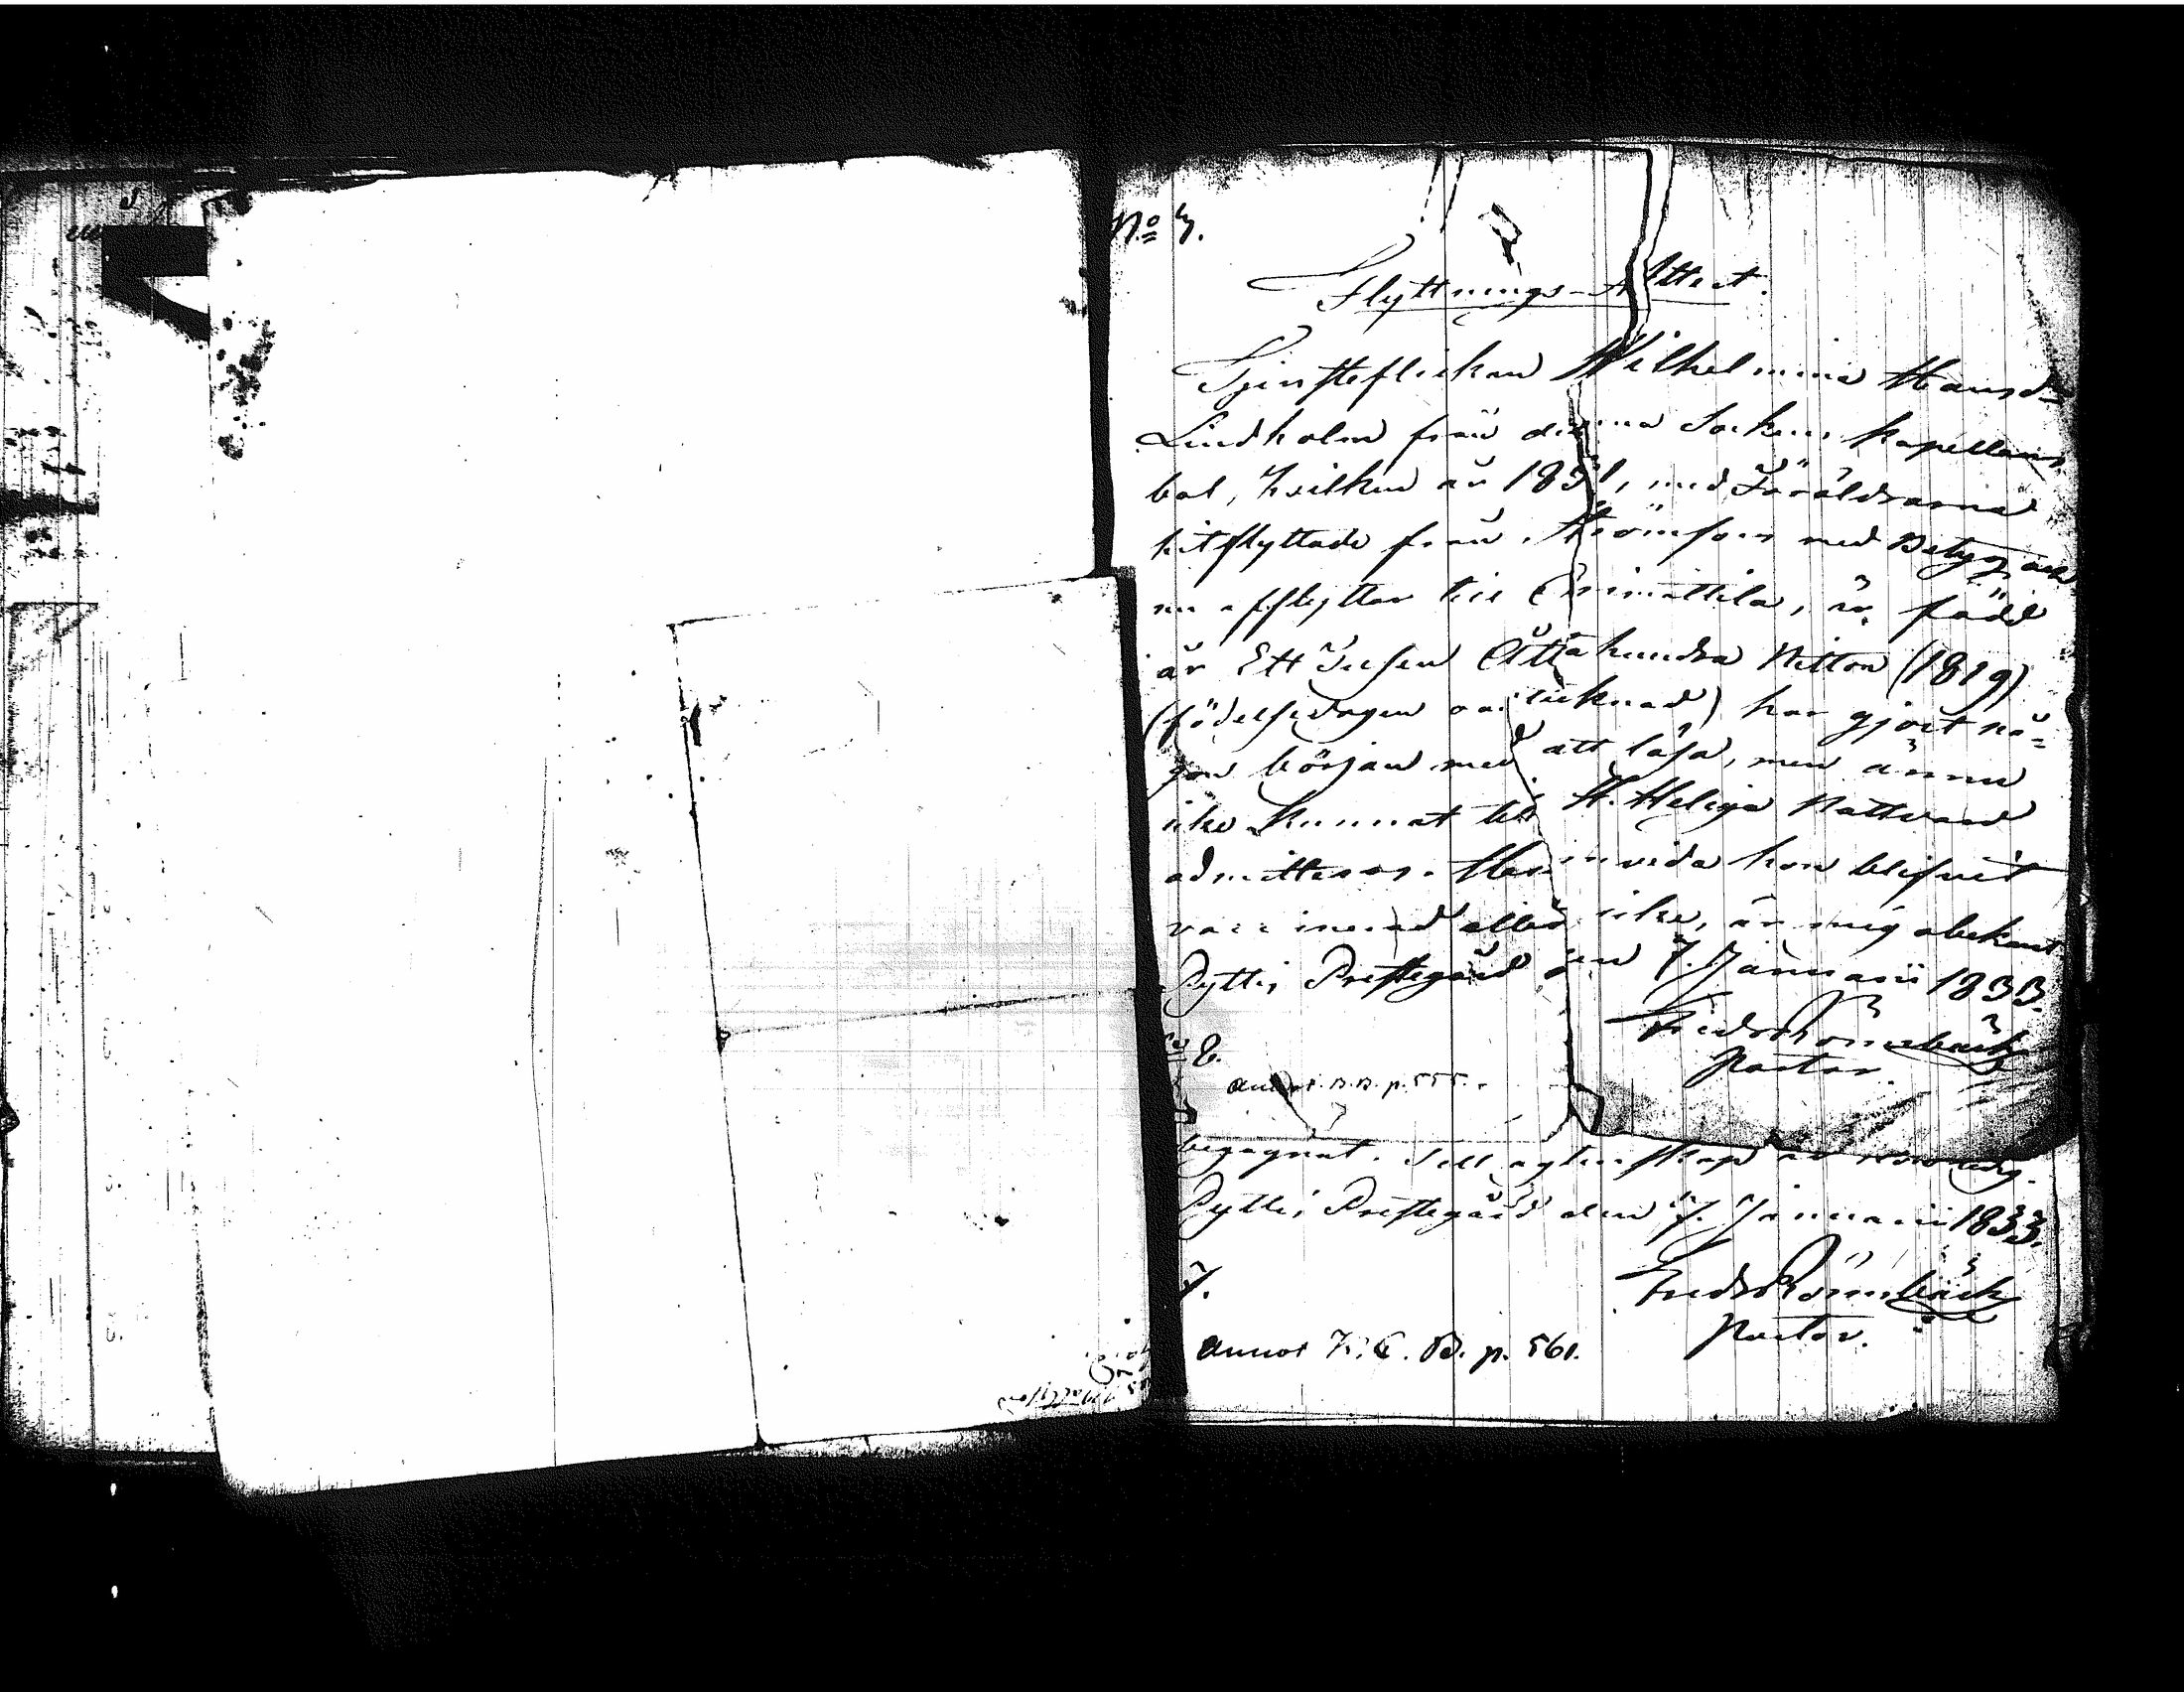 No 7.
Flyttnings-Attest.
Tjensteflickan Wilhelmina Mansd=
Lindholm från denna Sockens Kapellans
bol, hvilken år 1831, med Föräldrarna
hitflyttade från Strömfors med Betyg, och
nu afflyttar till Orimattila, är född
år Ett Tusen Åttahundra Nitton (1819)
(födelsedagen oantecknad) har gjort nå=
gon början med att läsa, men ännu
icke kunnat till H. Heliga Nattvard
admitteras. Huruvida hon blifvit
vaccinerad eller icke, är mig obekant
Pyttis Prestegård den 7. Januarii 1833.
Fredr Rönnbäck
Pastor.
8.
Annot. B.B. p. 555.
begagnat. Till agtenskap är hon ledig.
Pyttis Prestegård den 7. Januarii 1833.
Fredr Rönnbäck
Pastor.
7.
Annot K. C. B. p. 561.